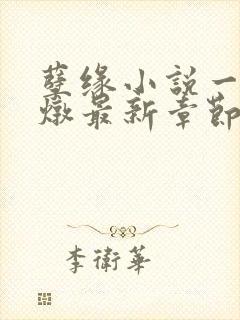 孽缘小說一
燉最新章節
李衛華